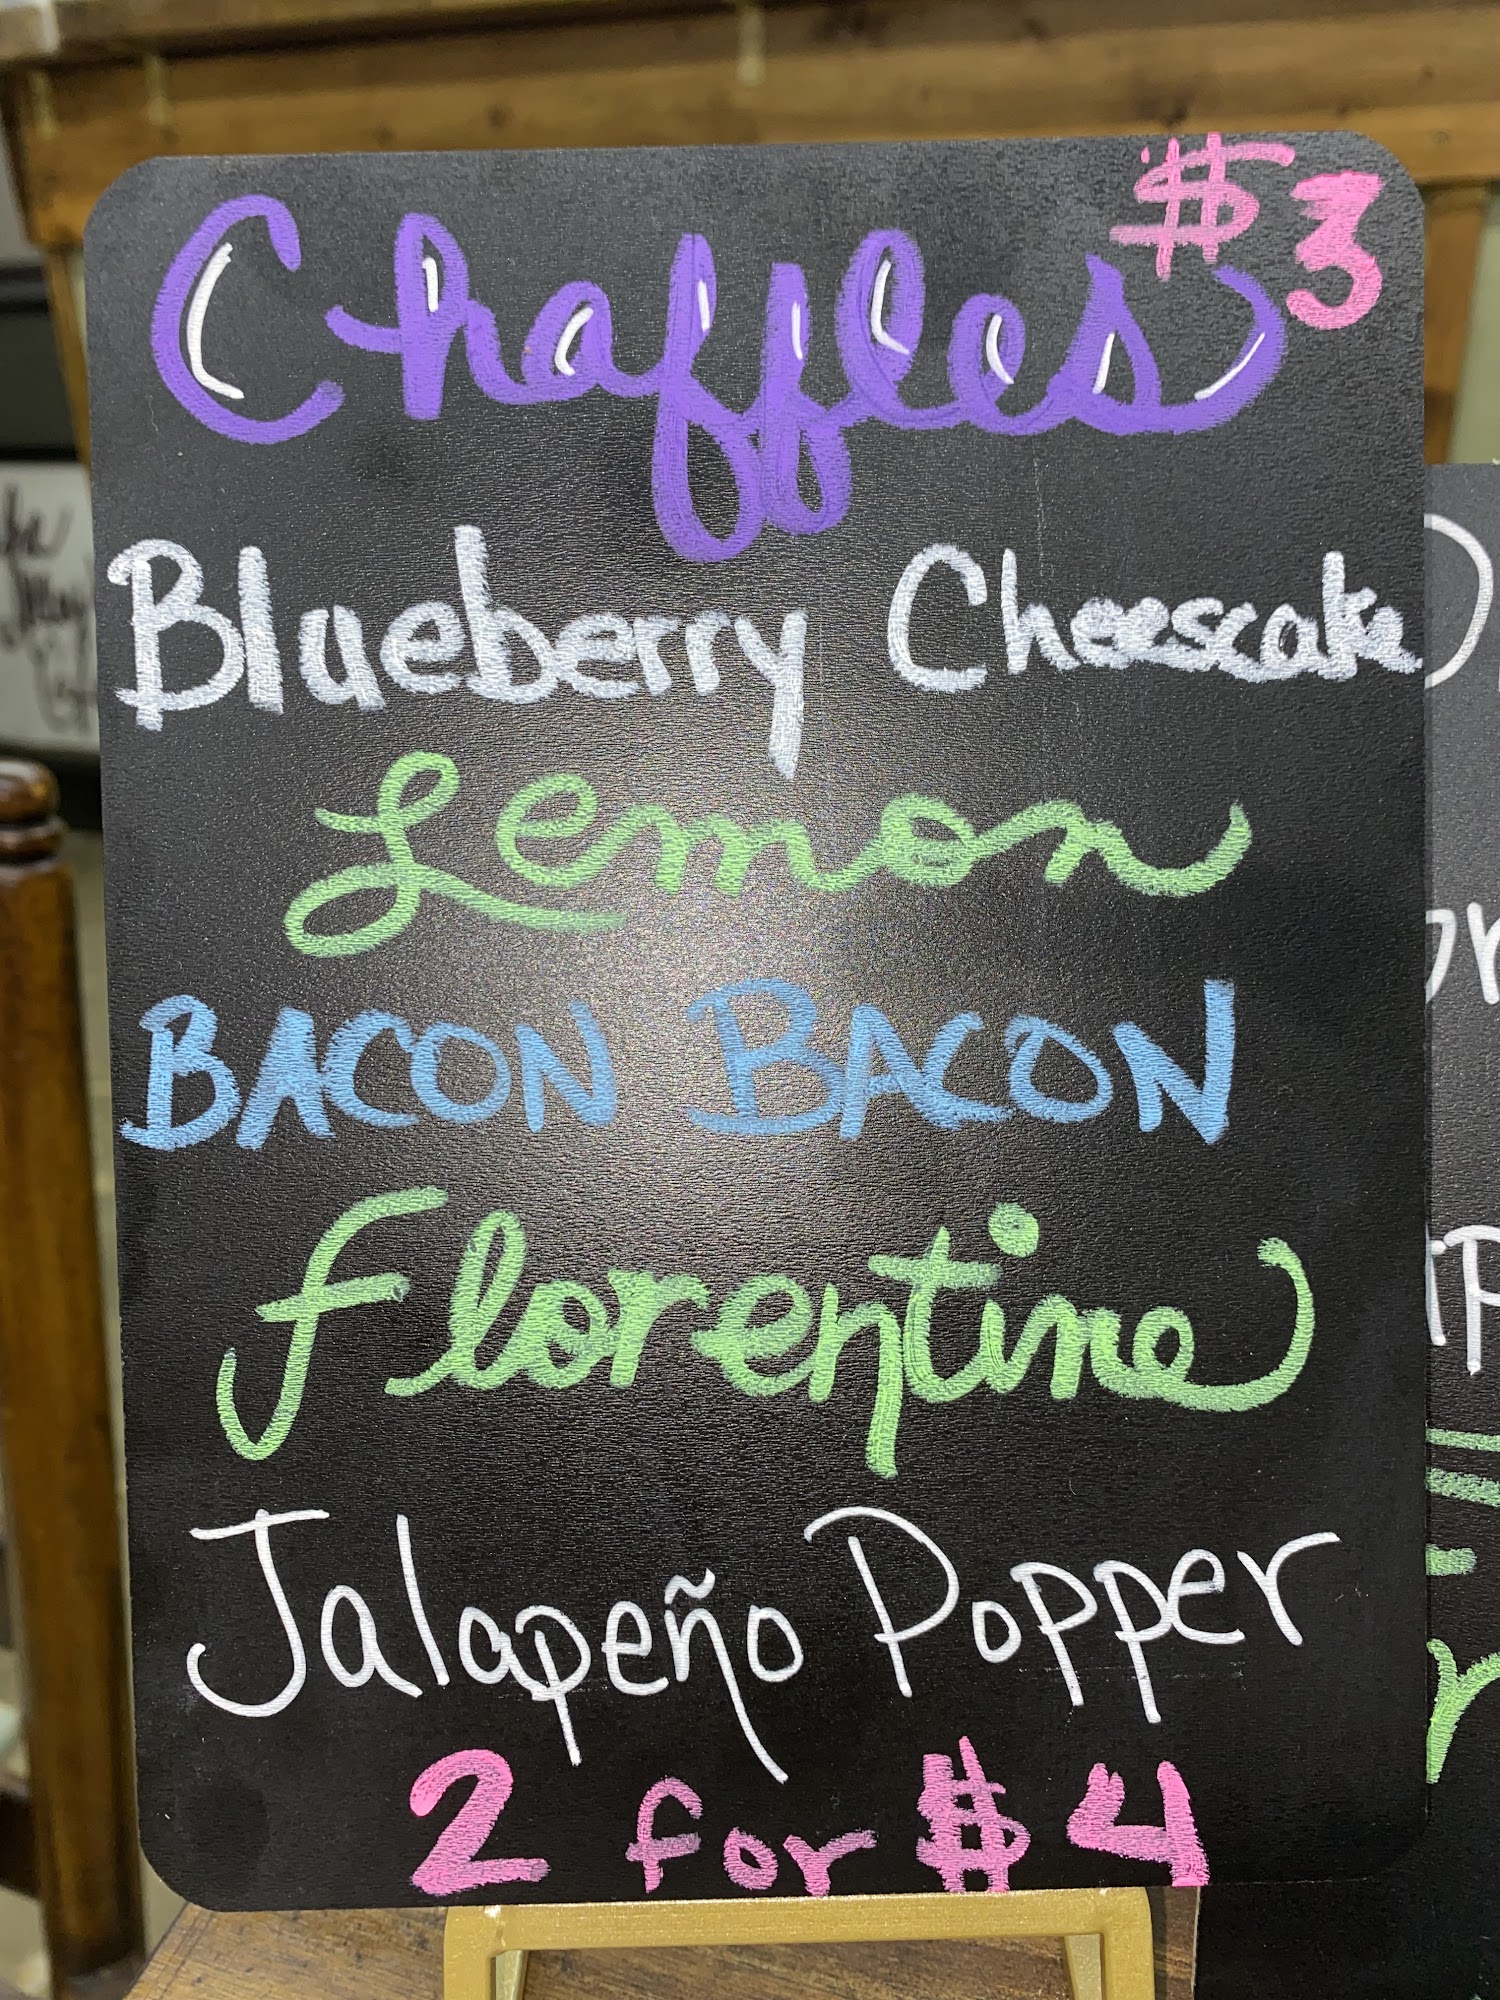 Chaffles $3
Blueberry Cheesecake
Lemon
BACON BACON
Florentine
Jalapeño Popper
2 for $4